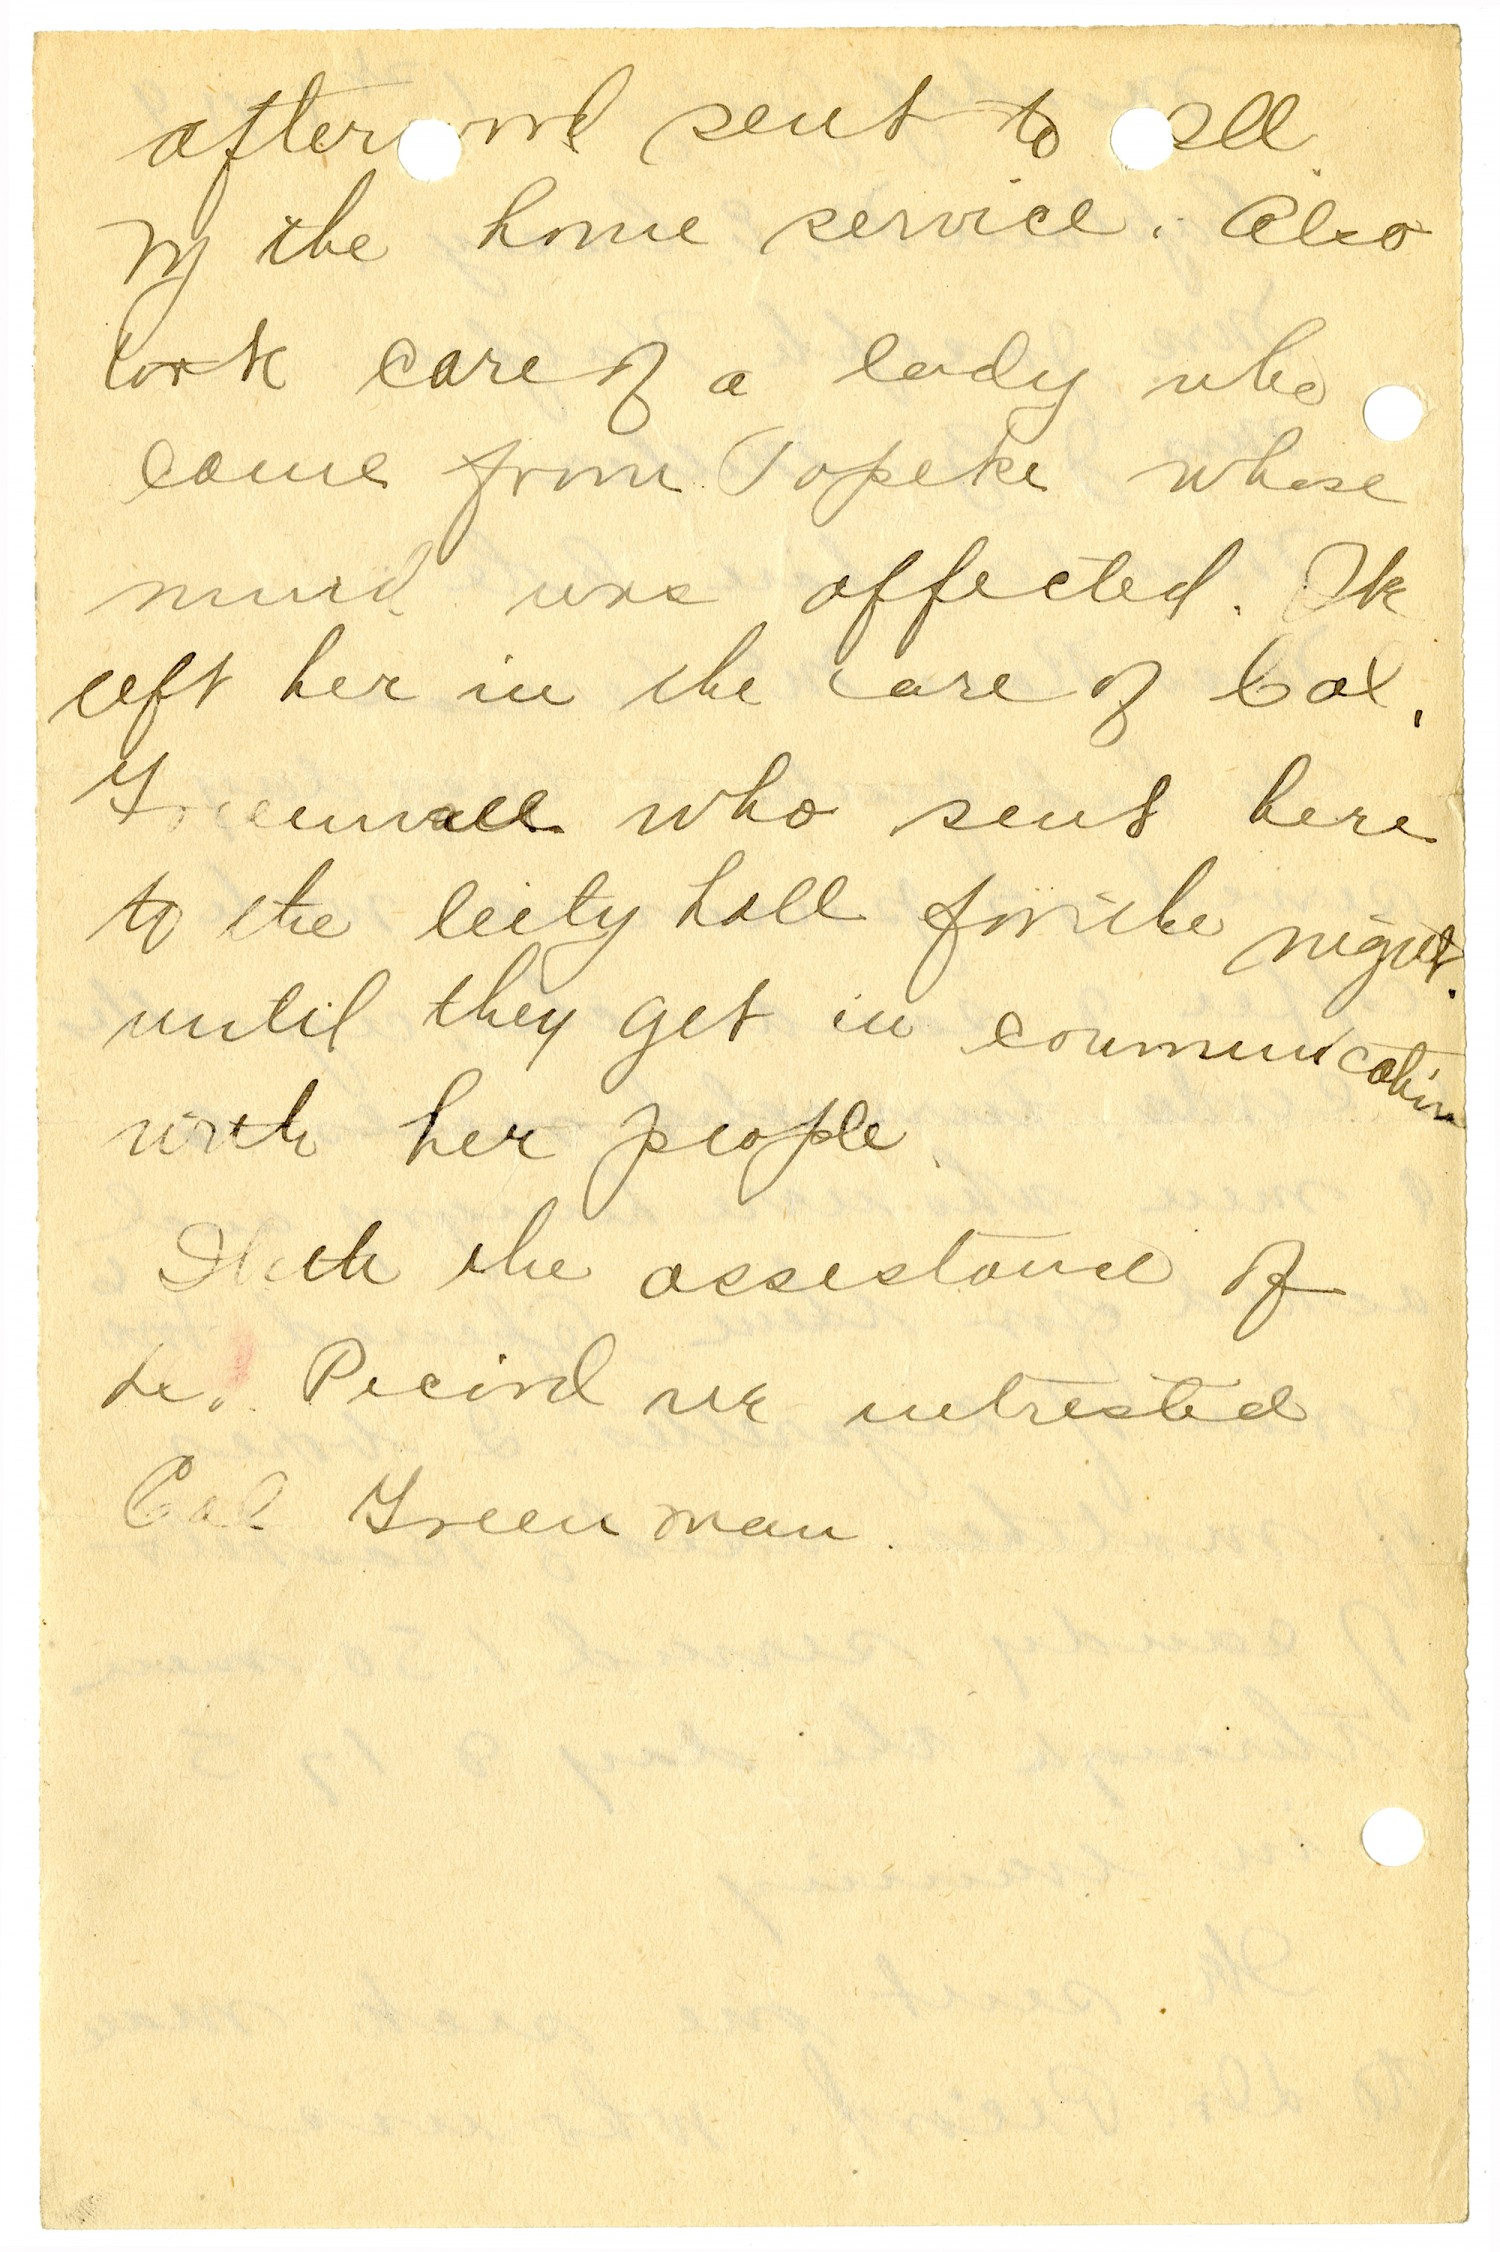 afterward sent to
by the home service. Also
took care of a lady who
came from Topeka whose
mind was affected. We
left her in the care of Col.
Greenwall who sent here
to the city hall for the night.
until they get in communication
with her people.
With the assistance of
Dr. Picard we intrested
Col Greenman.